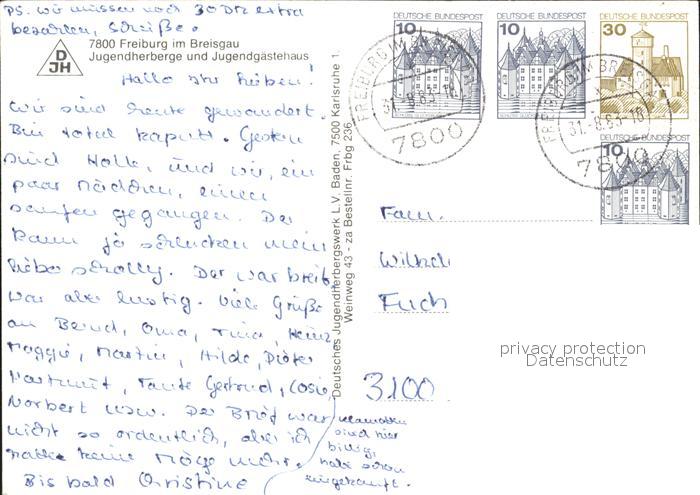 PS. wir müssen noch 30 DM extra
bezahlen, Scheiße.
DJH
7800 Freiburg im Breisgau
Jugendherberge und Jugendgästehaus
Hallo ihr Lieben!
Wir sind heute gewandert.
Bin total kaputt. Gestern
sind Holle, und wir, ein
paar Mädchen, einen
saufen gegangen. Der
kann ja schlucken mein
lieber Scholly. Der war breit
war aber lustig. Viele Grüße
an Bernd, Oma, Tina, Heinz
Maggie, Martin, Hilde, Dieter
Hartmut, Tante Gertrud,
Norbert usw. Der Brief war
nicht so ordentlich, aber ich
habe keine Möge mehr.
Bis bald Christine
Klamotten
sind hier
billig,
habe schon
eingekauft.
Deutsches Jugendherbergswerk L.V. Baden, 7500 Karlsruhe 1,
Weinweg 43 - za Bestellnr. Frbg 236
DEUTSCHE BUNDESPOST
10
DEUTSCHE BUNDESPOST
10
DEUTSCHE BUNDESPOST
30
DEUTSCHE BUNDESPOST
10
FREIBURG IM BREISGAU
31.-8.83-18
7800
FREIBURG IM BREISGAU
31.-8.83-18
7800
Fam.
Fuch
3100
privacy protection
Datenschutz